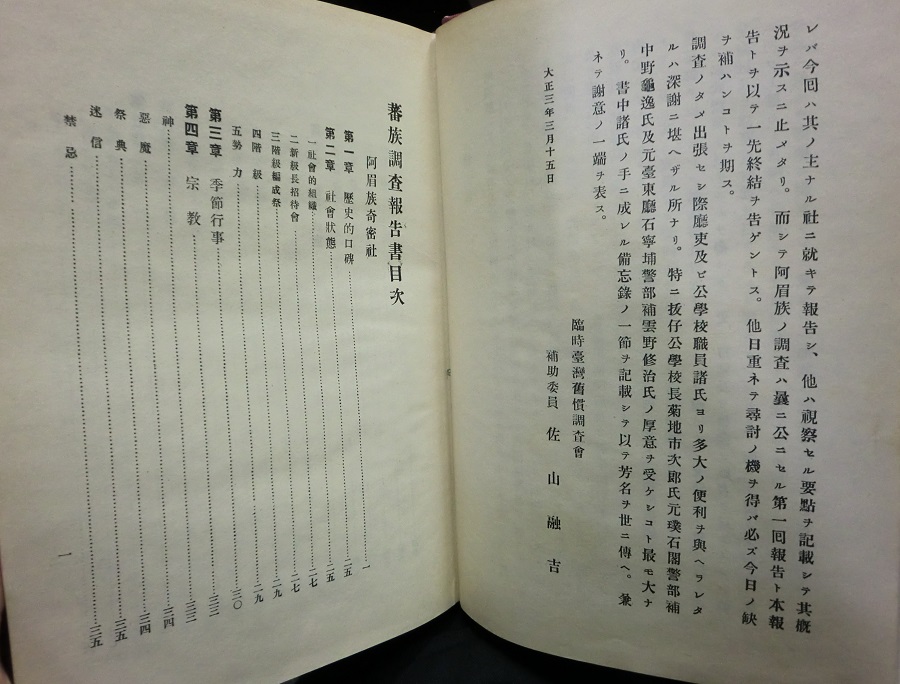 レバ今囘ハ其ノ主ナル社ニ就キテ報告シ、他ハ視察セル要點ヲ記載シテ其概
況ヲ示スニ止メタリ。而シテ阿眉族ノ調査ハ曩ニ公ニセル第一囘報告ト本報
告トヲ以テ一先終結ヲ告ゲントス。他日重ネテ尋討ノ機ヲ得バ必ズ今日ノ缺
ヲ補ハンコトヲ期ス。
調査ノタメ出張セシ際廳吏及ビ公學校職員諸氏ヨリ多大ノ便利ヲ與ヘラレタ
ルハ深謝ニ堪ヘザル所ナリ。特ニ拔仔公學校長菊地市次郎氏元璞石閣警部補
中野龜逸氏及元臺東廳石寧埔警部補雲野修治氏ノ厚意ヲ受ケシコト最モ大ナ
リ。書中諸氏ノ手ニ成レル備忘錄ノ一節ヲ記載シテ以テ芳名ヲ世ニ傳ヘ。兼
ネテ謝意ノ一端ヲ表ス。
大正三年三月十五日
臨時臺灣舊慣調查會
補助委員 佐山融吉
蕃族調查報告書目次
阿眉族奇密社……一
第一章 歷史的口碑……二五
第二章 社會狀態……二五
一社會的組織……二七
二新級長招待會……二七
三階級編成祭……二九
四階級……二九
五勢力……三〇
第三章 季節行事……三三
第四章 宗教……三三
神……三四
惡魔……三四
祭典……三五
迷信……三五
禁忌
一